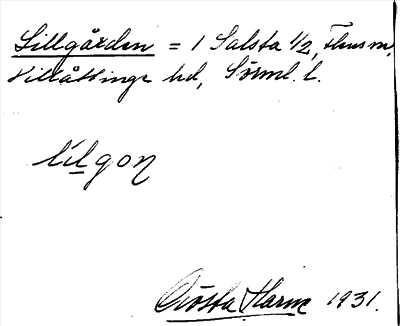 Lillgården = 1 Salsta 1/2, Husm,
Villåttinge hd, Sörml. l.
lilgon
Gösta Harm 1931.